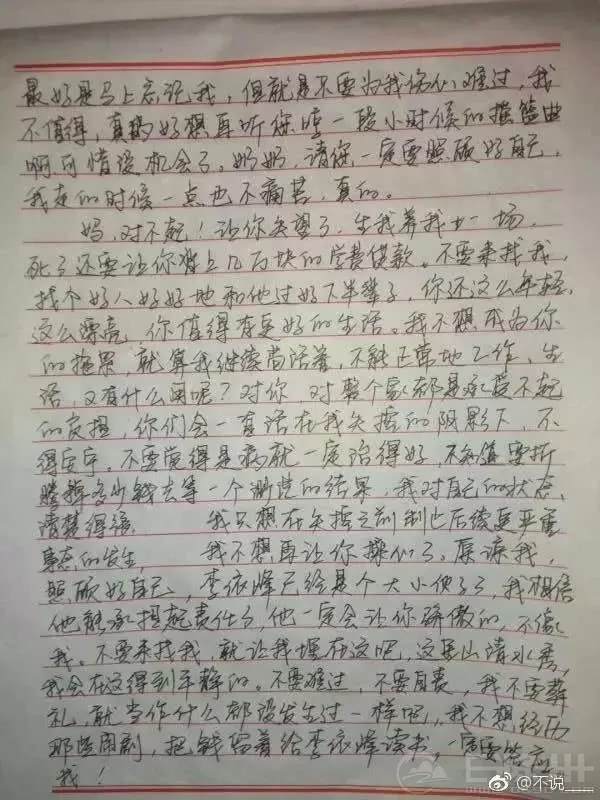 最好是马上忘记我，但就是不要为我伤心难过，我
不值得，真的好想再听你哼一段小时候的摇篮曲
啊可惜没机会了。奶奶，请你一定要照顾好自己，
我走的时候一点也不痛苦，真的。
妈，对不起！让你失望了，生我养我廿一场，
死了还要让你背上几万块的学费贷款。不要来找我，
找个好人好好地和他过好下半辈子，你还这么年轻，
这么漂亮，你值得有更好的生活。我不想成为你
的拖累，就算我继续苟活着，不能正常地工作、生
活，又有什么用呢？对你，对整个家都是承受不起
的负担，你们会一直活在我失控的阴影下，不
得安宁。不要觉得是病就一定治得好，不知道要折
腾掉多少钱去等一个渺茫的结果，我对自己的状态，
清楚得很 我只想在失控之前制止后续更严重
事态的发生， 我不想再让你操心了。原谅我，
照顾好自己，李依峰已经是个大小伙子了，我相信
他能承担起责任了，他一定会让你骄傲的，不像
我。不要来找我，就让我埋在这吧，这里山清水秀，
我会在这得到平静的。不要难过，不要自责，我不要葬
礼，就当作什么都没发生过一样吧，我不想经历
那些闹剧，把钱留着给李依峰读书，一定要答应
我！
@不说